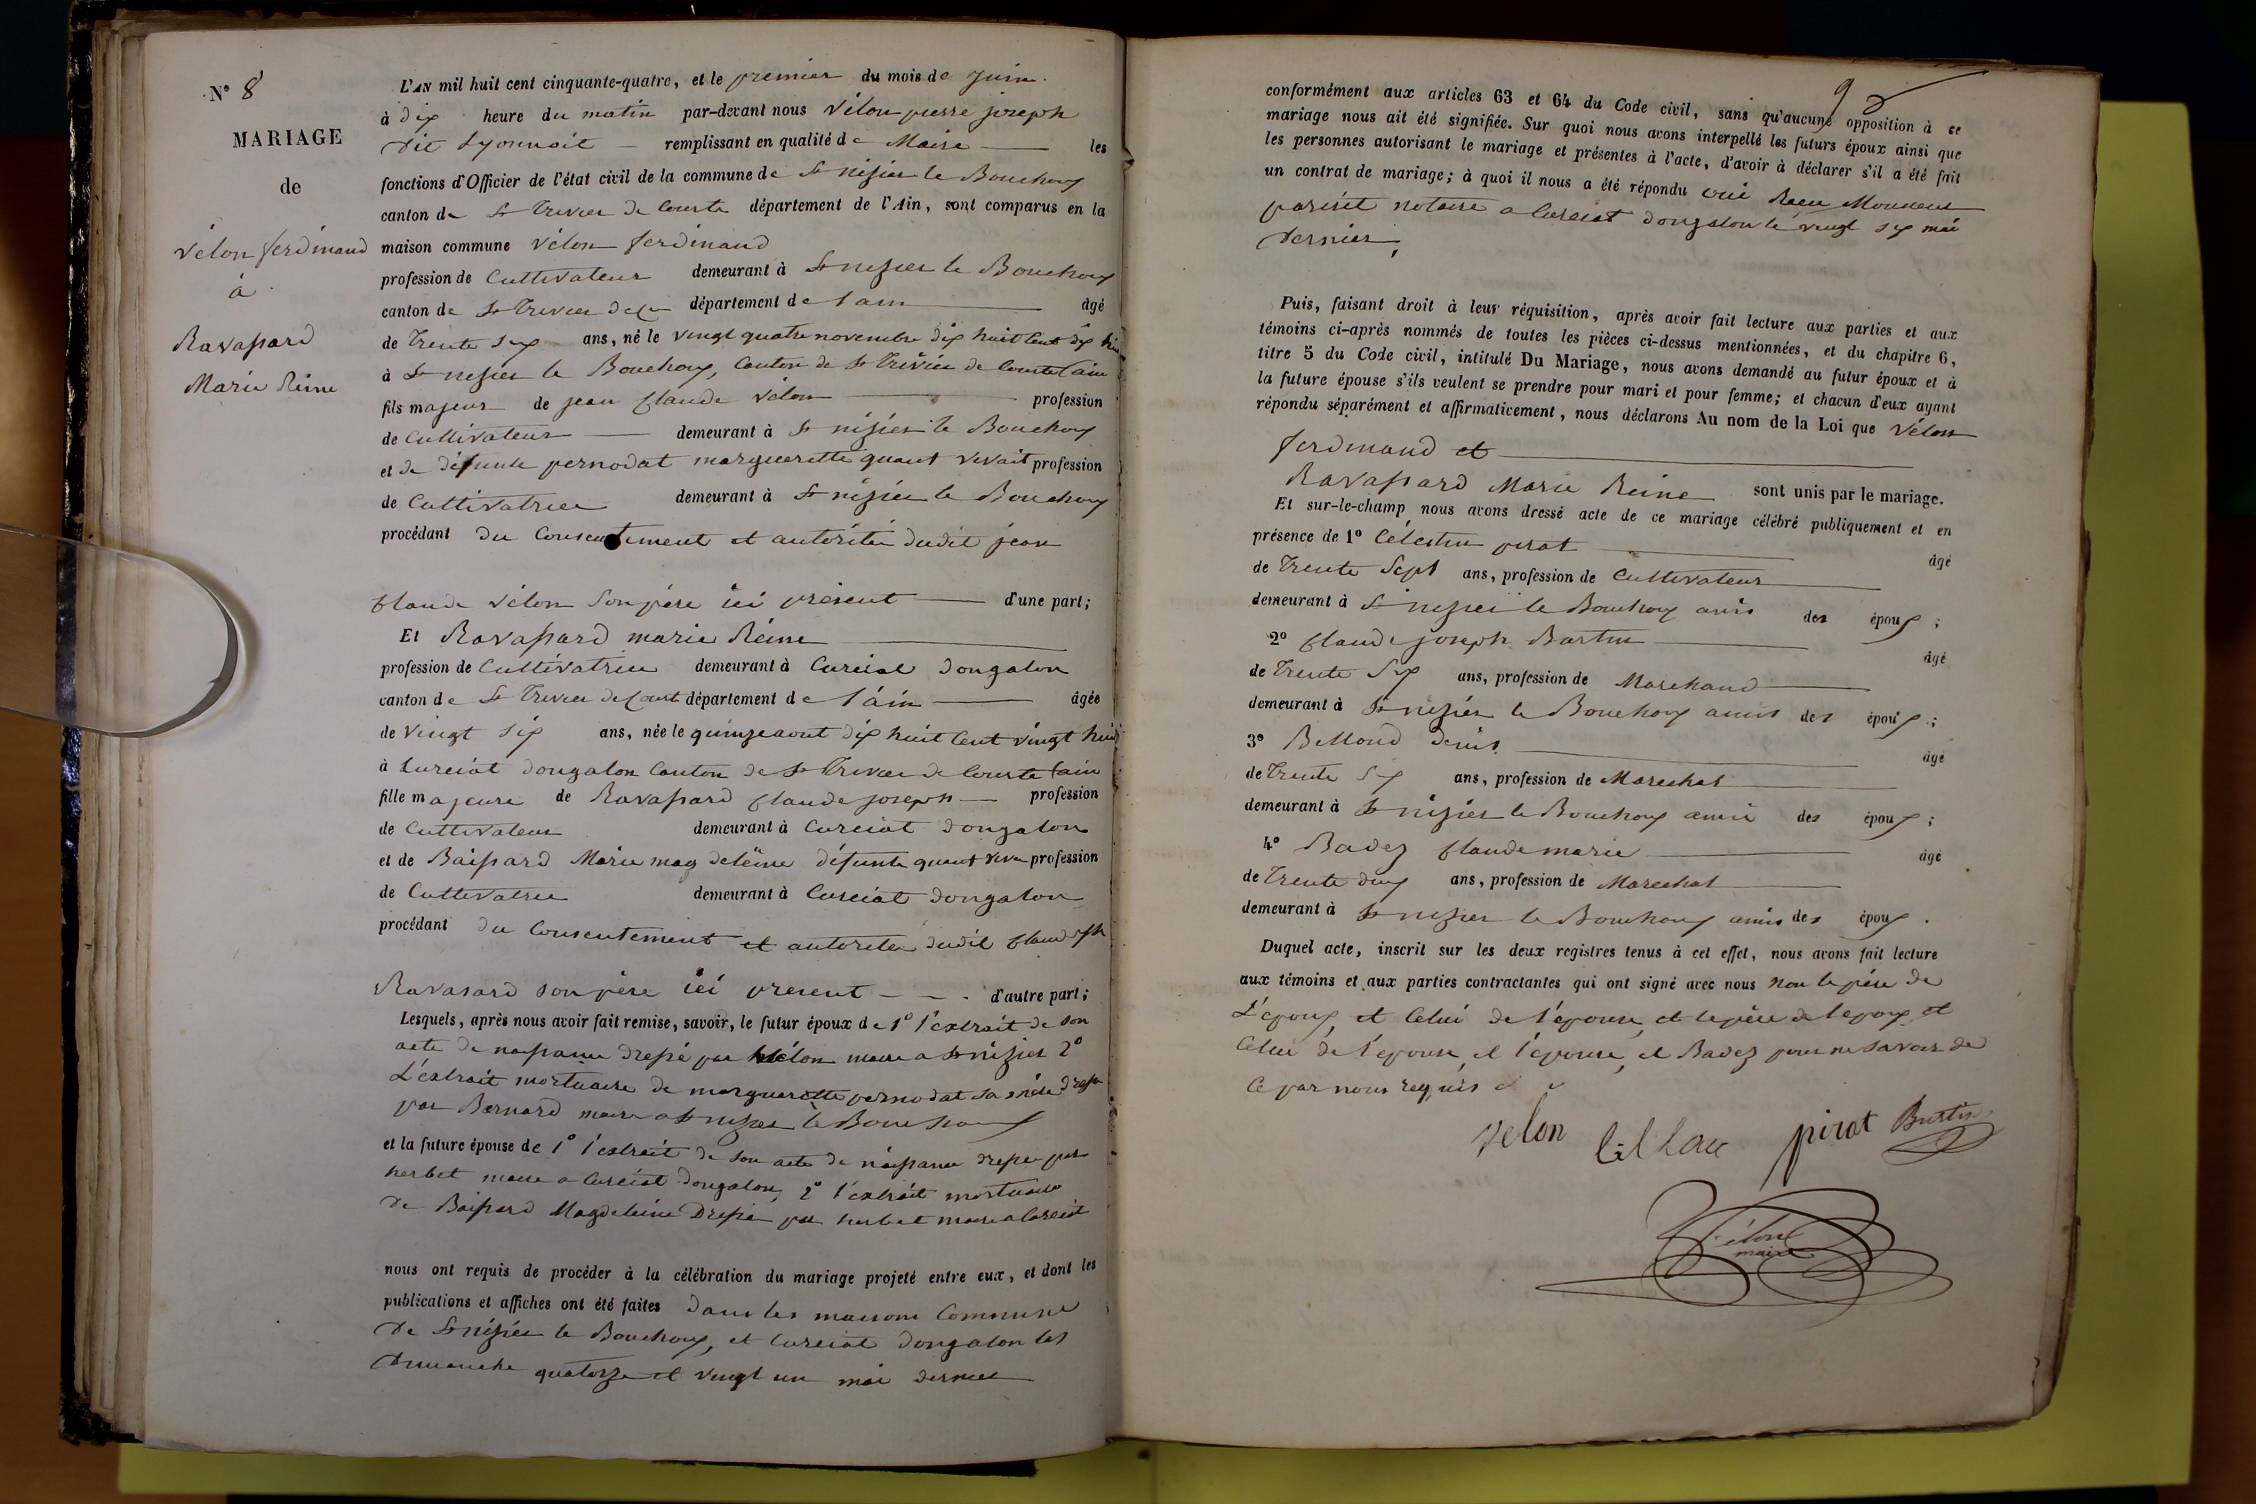 N° 8
MARIAGE
de
vélon ferdinand
à
Ravassard
Marie Reine
L'AN mil huit cent cinquante-quatre, et le premier du mois de juin
à dix heure du matin par-devant nous vélon pierre joseph
dit Lyonnoit remplissant en qualité de Maire les
fonctions d'Officier de l'état civil de la commune de St nizier le Bouchoux
canton de St Trivier de Courte département de l'Ain, sont comparus en la
maison commune vélon ferdinand
profession de Cultivateur demeurant à St nizier le Bouchoux
canton de St Trivier de Co département de l'ain âgé
de Trente six ans, né le vingt quatre novembre dix huit cent dix hui
à St nizier le Bouchoux, Canton de St Trivier de Courte l'ain
fils majeur de jean Claude vélon profession
de Cultivateur demeurant à St nizier le Bouchoux
et de défunte pernodat marguerette quant vivait profession
de Cultivatrice demeurant à St nizier le Bouchoux
procédant du Consentement et autorité dudit jean
Claude vélon son père ici présent d'une part;
Et Ravassard marie Réine
profession de Cultivatrice demeurant à Curciat dongalon
canton de St Trivier de Court département de l'ain âgée
de vingt six ans, née le quinze aout dix huit cent vingt huit
à Curciat dongalon Canton de St Trivier de Courte l'ain
fille majeure de Ravassard Claude joseph profession
de Cultivateur demeurant à Curciat dongalon
et de Baissard Marie magdeleine défunte quant viva profession
de Cultivatrice demeurant à Curciat dongalon
procédant du Consentement et autorité dudit Claude jph
Ravasard son père ici présent d'autre part;
Lesquels, après nous avoir fait remise, savoir, le futur époux de 1° l'extrait de son
acte de naissance dressé par vélon maire a St nizier 2°
L'éxtrait mortuaire de marguerette pernodat sa mère dressé
par Bernard maire a St nizier le Bouchoux
et la future épouse de 1° l'extrait de son acte de naissance dressé par
herbet maire a Curciat dongalon, 2° l'extrait mortuaire
de Baissard Magdeleine Dressé par herbet maire a Curciat
nous ont requis de procéder à la célébration du mariage projeté entre eux, et dont les
publications et affiches ont été faites dans les maisons Commune
de St nizier le Bouchoux, et Curciat dongalon les
dimanche quatorze et vingt un mai dernier
9
conformément aux articles 63 et 64 du Code civil, sans qu'aucune opposition à ce
mariage nous ait été signifiée. Sur quoi nous avons interpellé les futurs époux ainsi que
les personnes autorisant le mariage et présentes à l'acte, d'avoir à déclarer s'il a été fait
un contrat de mariage; à quoi il nous a été répondu oui Recu
notaire a Curciat dongalon le vingt six mai
dernier,
Puis, faisant droit à leur réquisition, après avoir fait lecture aux parties et aux
témoins ci-après nommés de toutes les pièces ci-dessus mentionnées, et du chapitre 6,
titre 5 du Code civil, intitulé Du Mariage, nous avons demandé au futur époux et à
la future épouse s'ils veulent se prendre pour mari et pour femme; et chacun d'eux ayant
répondu séparément et affirmativement, nous déclarons Au nom de la Loi que vélon
ferdinand et
Ravassard Marie Reine sont unis par le mariage.
Et sur-le-champ nous avons dressé acte de ce mariage célébré publiquement et en
présence de 1° Célestin pirat âgé
de Trente Sept ans, profession de Cultivateur
demeurant à St nizier le Bouchoux amis des époux;
2° Claude joseph Burtin âgé
de Trente Six ans, profession de Marchand
demeurant à St nizier le Bouchoux amis des époux;
3° Bellond denis âgé
de Trente Six ans, profession de Marechal
demeurant à St nizier le Bouchoux amis des époux;
4° Badez Claude marie âgé
de Trente deux ans, profession de Marechal
demeurant à St nizier le Bouchoux amis des époux.
Duquel acte, inscrit sur les deux registres tenus à cet effet, nous avons fait lecture
aux témoins et aux parties contractantes qui ont signé avec nous non le père de
L'époux, et Celui de l'épouse, et le père de lepoux et
Celui de l'epouse, et l'épouse, et Badez pour ne savoir de
Ce par nous requis
velon pirat Burtin
Vélon
maire